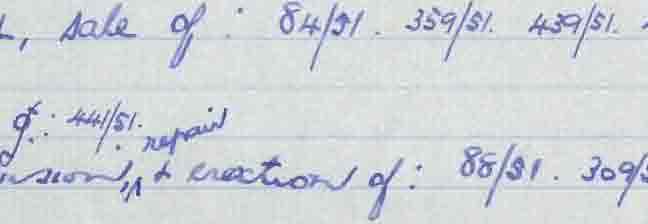 , sale of : 84/51. 359/51. 439/51.
of : 441/51.
repair
& erection of : 88/51. 309/5